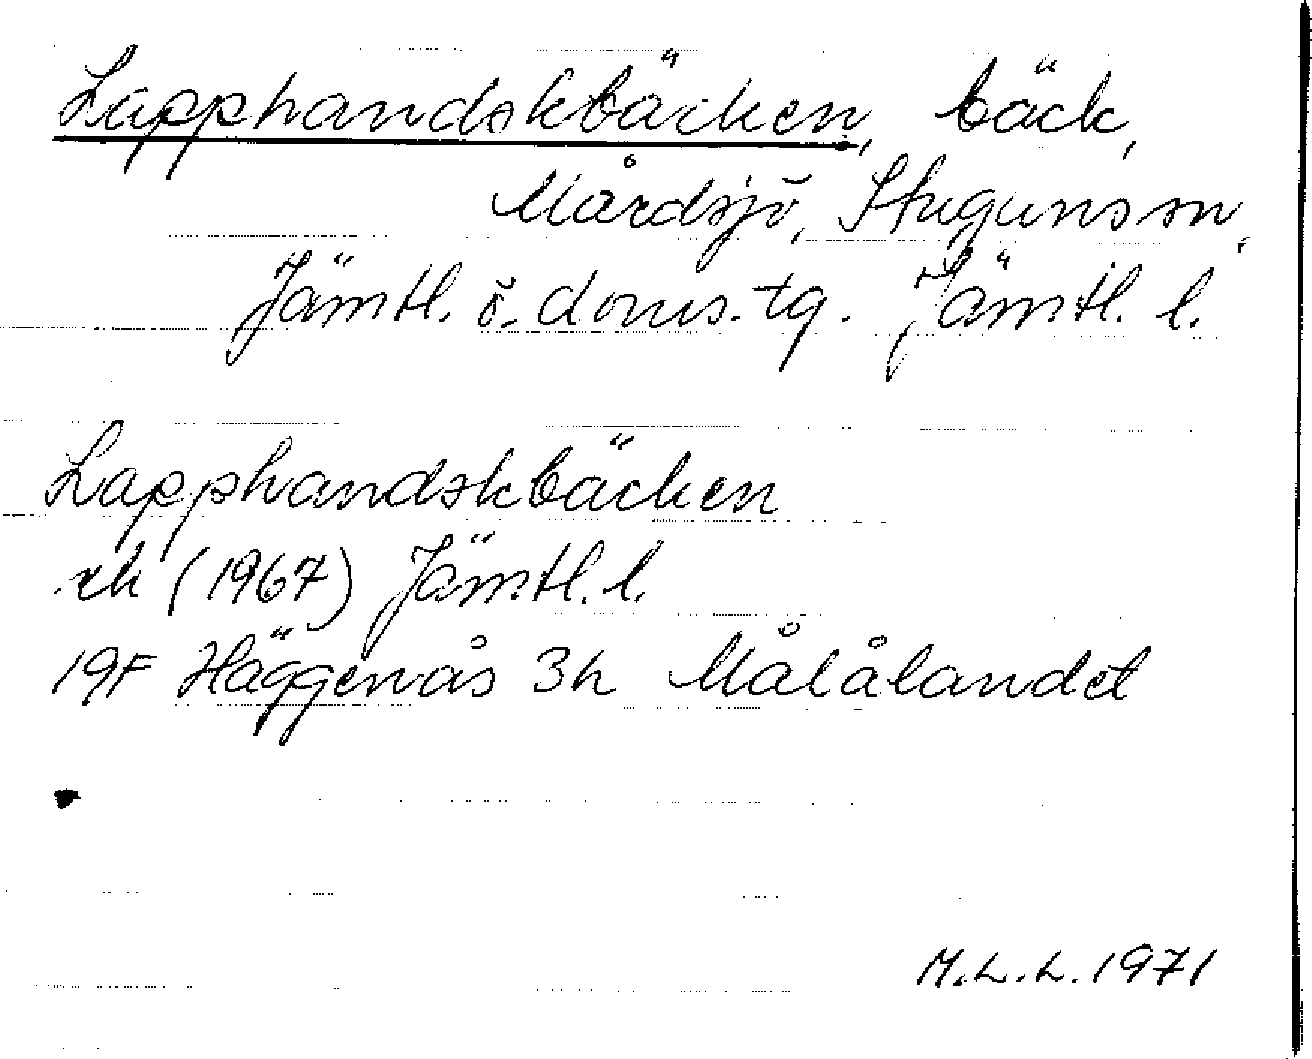 Lapphandskbäcken, bäck,
Mårdsjö, Stuguns sn,
Jämtl. ö. doms. tg. Jämtl. l.
Lapphandskbäcken
rk (1967) Jämtl. l.
19F Häggenås 3h Målålandet
M.L.L. 1971